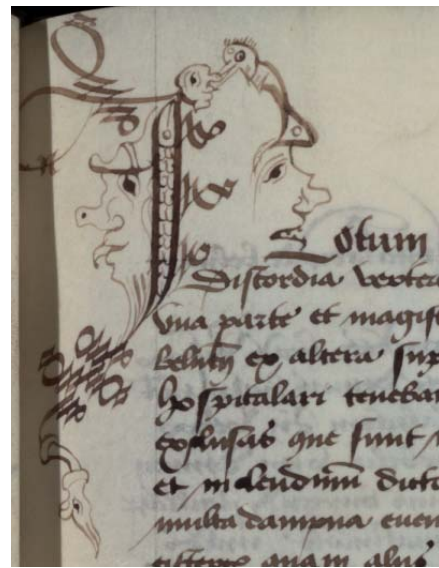 Notum
discordia verte
vna parte et magist
ex altera sup
hospitalari teneba
exclusas que sunt
et molendinum dicto
multa dampna euen
quam alijs